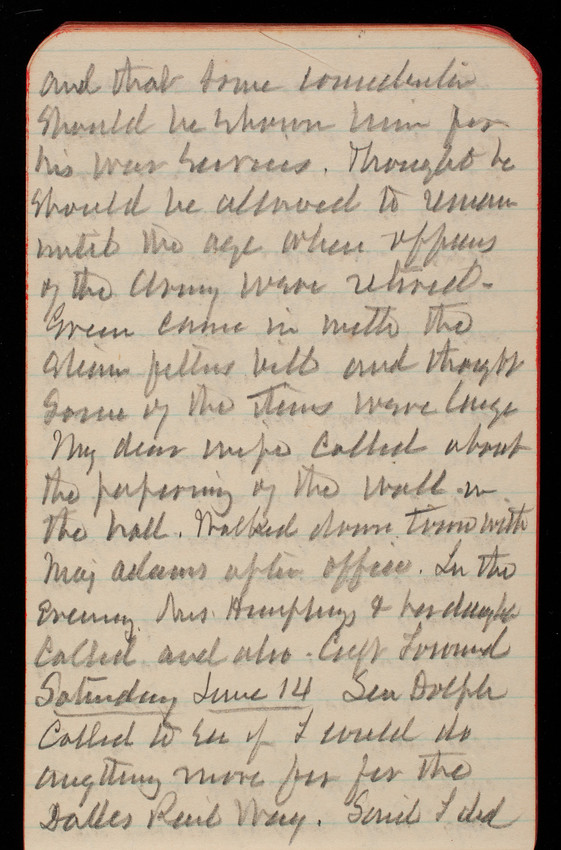 and that some consideration
should be shown him for
his war services. Thought he
should be allowed to remain
until the age when officers
of the Army were retired.
Green came in with the
steam fitters bill and thought
some of the items were large
My dear wife called about
the papering of the wall in
the hall. Walked down town with
Maj Adams after office. In the
evening Mrs. Humphreys & her daughter
called and also Capt
Saturday June 14 Sen Dolph
called to see if I would do
anything more for for the
Dalles Rail Way. Said I did